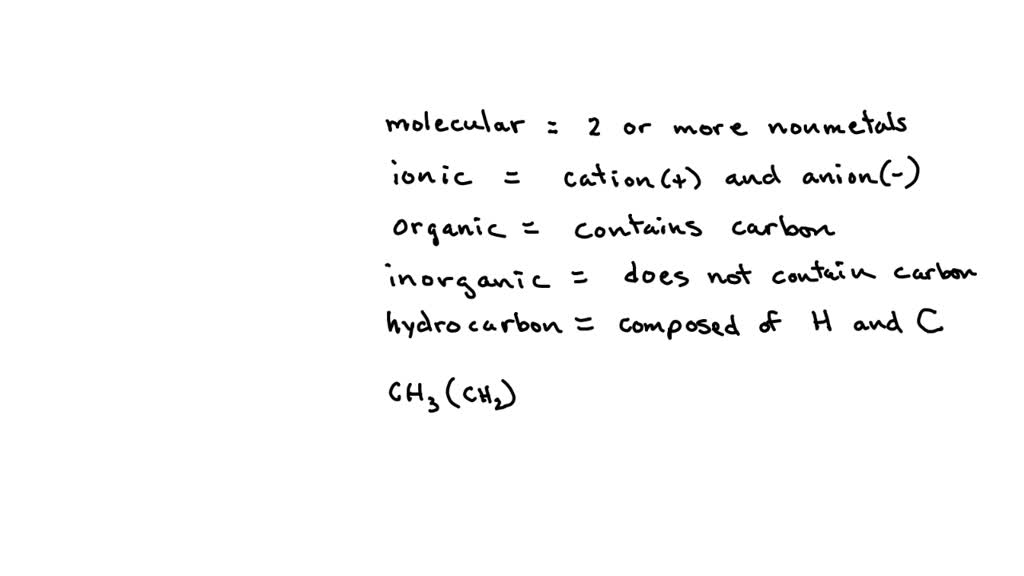 molecular = 2 or more nonmetals
ionic = cation(+) and anion(-)
organic = contains carbon
inorganic = does not contain carbon
hydrocarbon = composed of H and C
CH₃(CH₂)